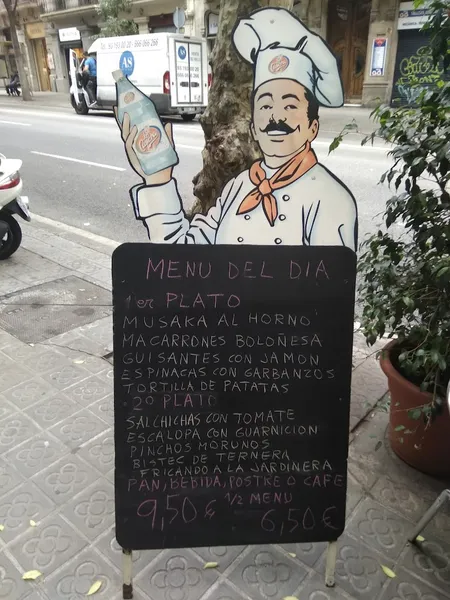 MENU DEL DIA
1er PLATO
MUSAKA AL HORNO
MACARRONES BOLOÑESA
GUISANTES CON JAMON
ESPINACAS CON GARBANZOS
TORTILLA DE PATATAS
2º PLATO
SALCHICHAS CON TOMATE
ESCALOPA CON GUARNICION
PINCHOS MORUNOS
BISTEC DE TERNERA
FRICANDO A LA JARDINERA
PAN, BEBIDA, POSTRE O CAFE
1/2 MENU
9,50€ 6,50€